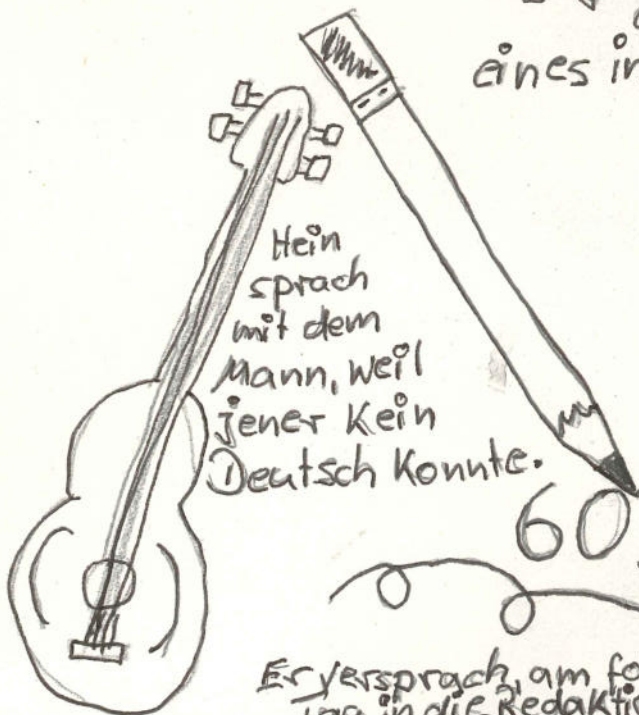 eines
Hein
sprach
mit dem
Mann, weil
jener kein
Deutsch konnte.
60
Er versprach, am
in die